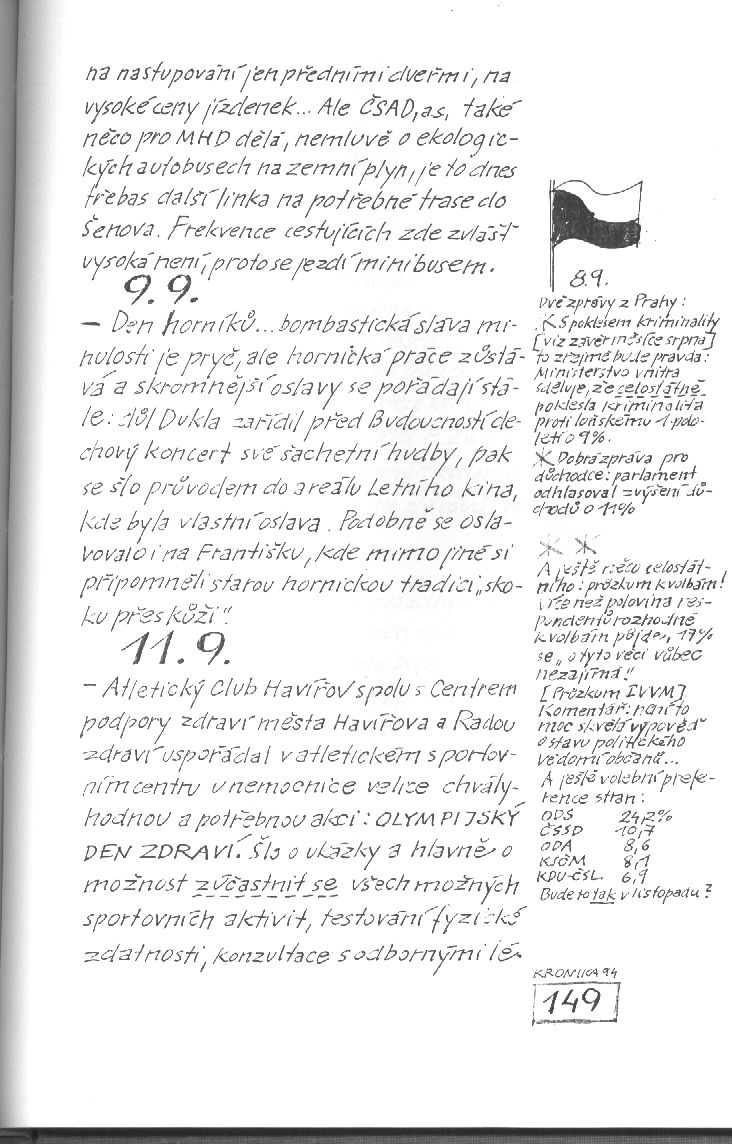 na nastupování jen předními dveřmi, na
vysoké ceny jízdenek... Ale ČSAD, a.s, také
něco pro MHD dělá, nemluvě o ekologic-
kých autobusech na zemní plyn, je to dnes
třebas další linka na potřebné trase do
Šenova. Frekvence cestujících zde zvlášť
vysoká není, proto se jezdí minibusem.
9.9.
– Den horníků... bombastická sláva mi-
nulosti je pryč, ale hornická práce zůstá-
vá a skromnější oslavy se pořádají stá-
le: důl Dukla zařídil před Budoucností de-
chový koncert své šachetní hudby, pak
se šlo průvodem do areálu Letního kina,
kde byla vlastní oslava. Podobně se osla-
vovalo i na Františku, kde mimo jiné si
připomněli starou hornickou tradici „sko-
ku přes kůži".
11.9.
– Atletický Club Havířov spolu s Centrem
podpory zdraví města Havířova a Radou
zdraví uspořádal v atletickém sportov-
ním centru u nemocnice velice chvály-
hodnou a potřebnou akci: OLYMPIJSKÝ
DEN ZDRAVÍ. Šlo o ukázky a hlavně o
možnost zúčastnit se všech možných
sportovních aktivit, testování fyzické
zdatnosti, konzultace s odbornými lé-
8.9.
Dvě zprávy z Prahy:
S poklesem kriminality
[viz závěr měsíce srpna]
to zřejmě bude pravda:
Ministerstvo vnitra
sděluje, že celostátně
poklesla kriminalita
proti loňskému 1. polo-
letí o 9%.
Dobrá zpráva pro
důchodce: parlament
odhlasoval zvýšení dů-
chodů o 11%
A ještě něco celostát-
ního: průzkum k volbám!
Více než polovina res-
pondentů rozhodně
k volbám půjde, 17%
se „o tyto věci vůbec
nezajímá"!
[Průzkum IVVM]
Komentář: není to
moc skvělá výpověď
o stavu politického
vědomí občanů...
A ještě volební prefe-
rence stran:
ODS 24,2%
ČSSD 10,7
ODA 8,6
KSČM 8,1
KDU-ČSL 6,9
Bude to tak v listopadu?
KRONIKA 94
149